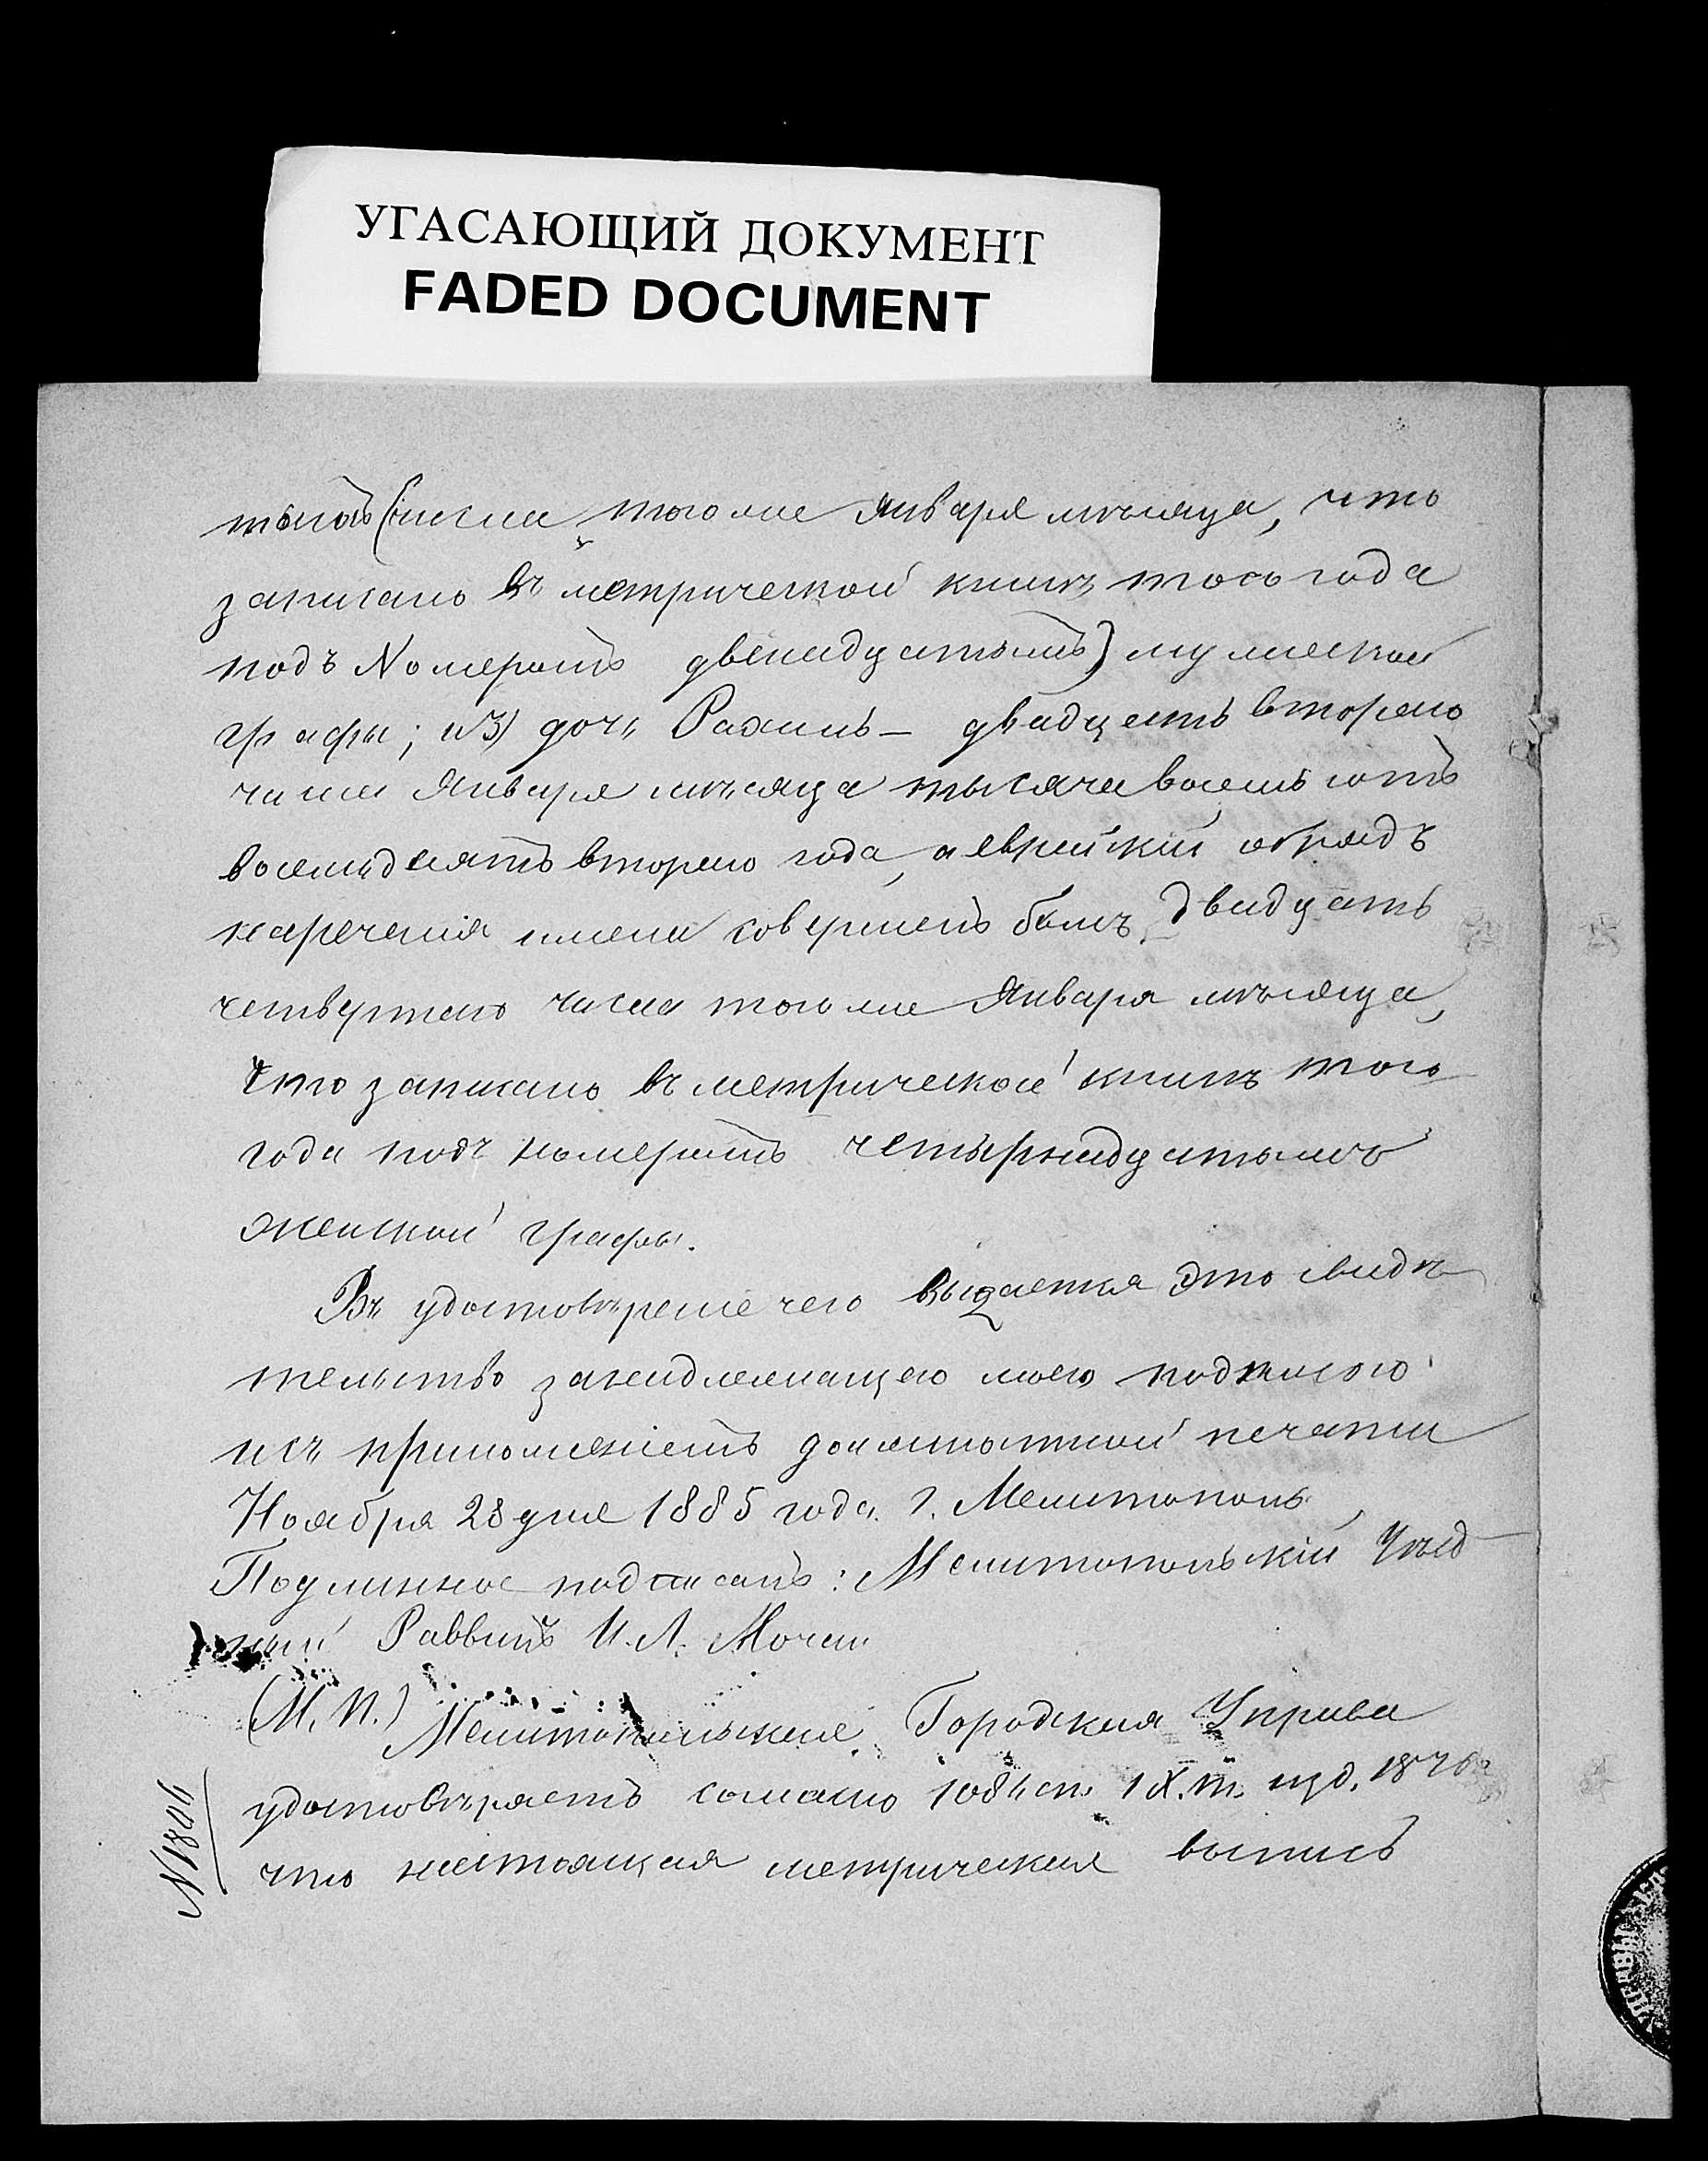 УГАСАЮЩИЙ ДОКУМЕНТ
FADED DOCUMENT
числа того же Января мѣсяца, что
записано въ метрической книгѣ того года
подъ Номеромъ двенадцатымъ) мужеской
графы; и 3) дочь Рахиль – двадцать второго
числа Января мѣсяца тысяча восемь сотъ
восемьдесятъ второго года, а еврейскій обрядъ
наречения имени совершенъ былъ двадцать
четвертого числа того же Января мѣсяца,
что записано въ метрической книгѣ того
года подъ номеромъ четырнадцатымъ
женской графы.
Въ удостовѣрение чего выдается это свидѣ
тельство за надлежащею моею подписью
и съ приложеніемъ должностной печати
Ноября 28 дня 1885 года. Г. Мелитополь
Подлинное подписалъ: Мелитопольскій Уѣзд
ный Раввинъ И. Л.
(М. П.) Мелитопольская Городская Управа
удостовѣряетъ согласно 1084 ст. IX. т. изд. 1876
что настоящая метрическая выпись
N 1896